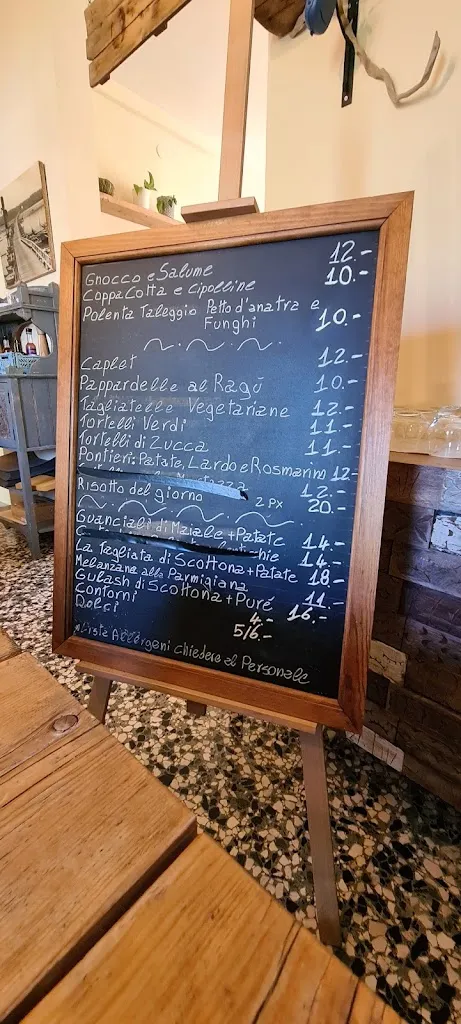 Gnocco e Salume 12.-
Coppa Cotta e cipolline 10.-
Polenta Taleggio Petto d'anatra e
Funghi 10.-
Caplet 12.-
Pappardelle al Ragú 10.-
Tagliatelle Vegetariane 12.-
Tortelli Verdi 11.-
Tortelli di Zucca 11.-
Pontieri: Patate, Lardo e Rosmarino 12-
12.-
Risotto del giorno 2 Px 20.-
Guanciali di Maiale + Patate 14.-
14.-
La Tagliata di Scottona + Patate 18.-
Melanzane alla Parmigiana 11.-
Gulash di Scottona + Puré 16.-
Contorni 4.-
Dolci 5/6.-
Lista Allergeni chiedere al Personale